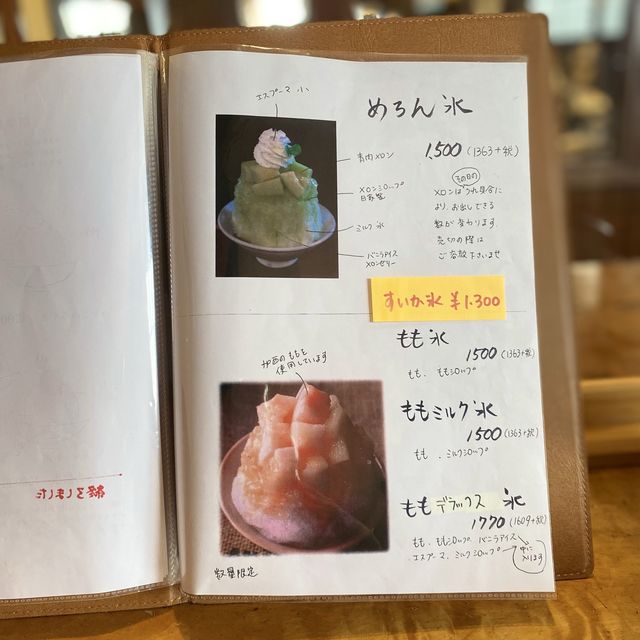 めろん氷
エスプーマ 小
1,500 (1363+税)
青肉メロン
メロンシロップ
自家製
ミルク氷
バニラアイス
メロンゼリー
その日の
メロンはうれ具合に
より、お出しできる
数が変わります。
売切の際は
ご容赦下さいませ
すいか氷 ¥1.300
もも氷
1500 (1363+税)
もも、ももシロップ
ももミルク氷
1500 (1363+税)
もも、ミルクシロップ
ももデラックス氷
1770 (1609+税)
もも、ももシロップ、バニラアイス
エスプーマ、ミルクシロップ
中に
入ります
ももを
使用しています
数量限定